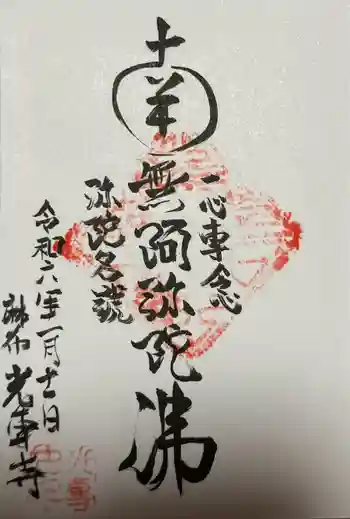 一心専念
南無阿弥陀佛
弥陀名號
令和六年一月十一日
麻布 光専寺